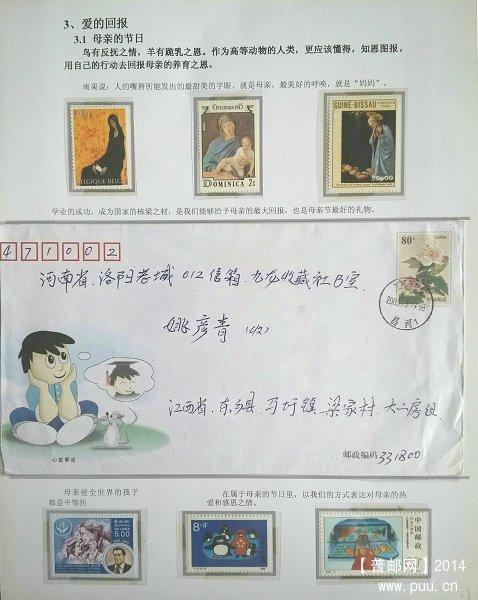 3、爱的回报
3.1 母亲的节日
鸟有反抚之情，羊有跪乳之恩。作为高等动物的人类，更应该懂得，知恩图报，
用自己的行动去回报母亲的养育之恩。
雨果说：人的嘴唇所能发出的最甜美的字眼，就是母亲，最美好的呼唤，就是“妈妈”。
BELGIQUE BELGIE
Christmas 1973
DOMINICA 2¢
GUINE-BISSAU
50.00
学业的成功，成为国家的栋梁之材，是我们能够给予母亲的最大回报，也是母亲节最好的礼物。
471002
80分
中国邮政
河南省、洛阳老城012信箱、九龙收藏社B室
姚彦青（收）
江西省、东乡县、马圩镇、梁家村、大二房组
心想事成
邮政编码 331800
母亲使全世界的孩子
都是平等的
在属于母亲的节日里，以我们的方式表达对母亲的热
爱和感恩之情。
SRI LANKA
5.00
8+4分
中国邮政
【普邮网】2014
www.puu.cn